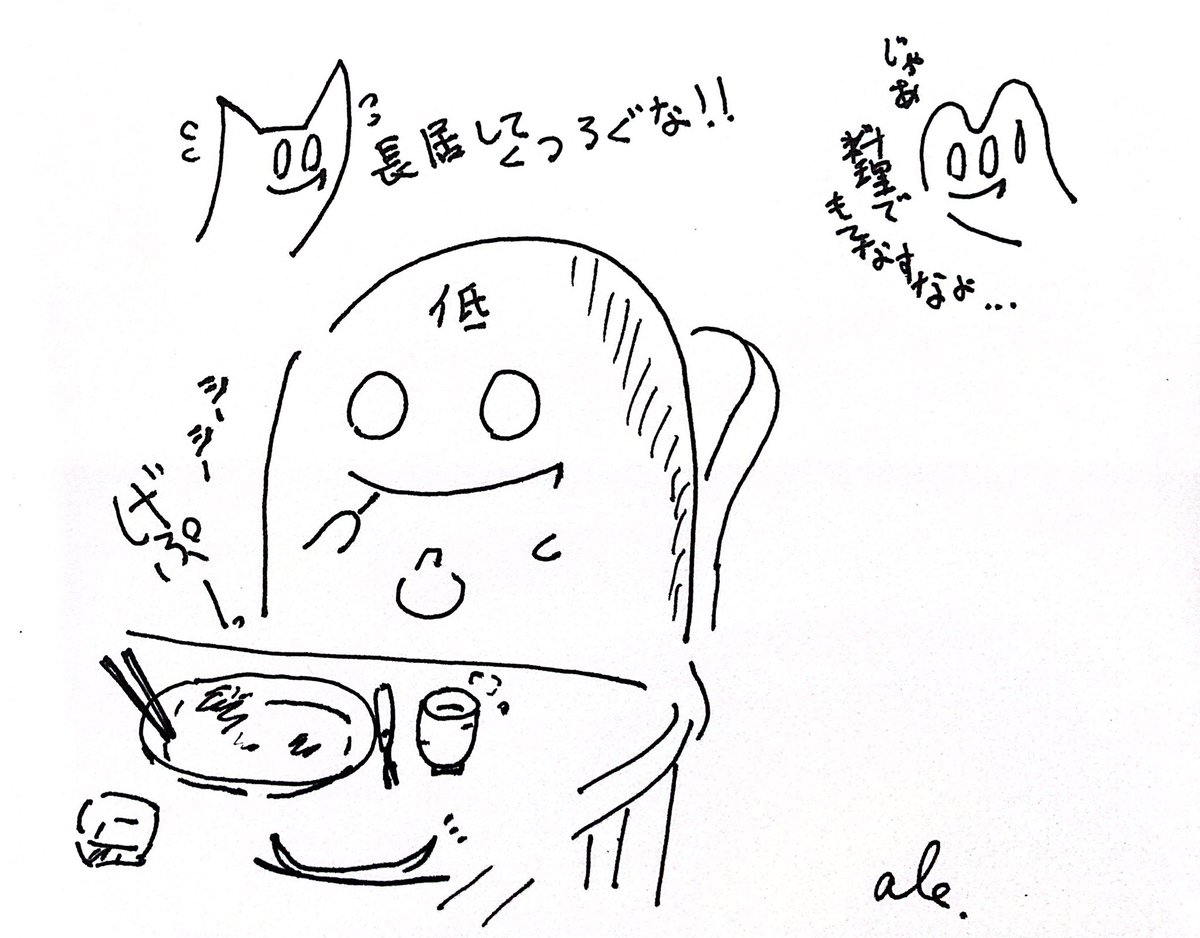 長居してくつろぐな!!
じゃあ
料理で
もてなすなよ...
低
シーシー
げぷーっ
ale.